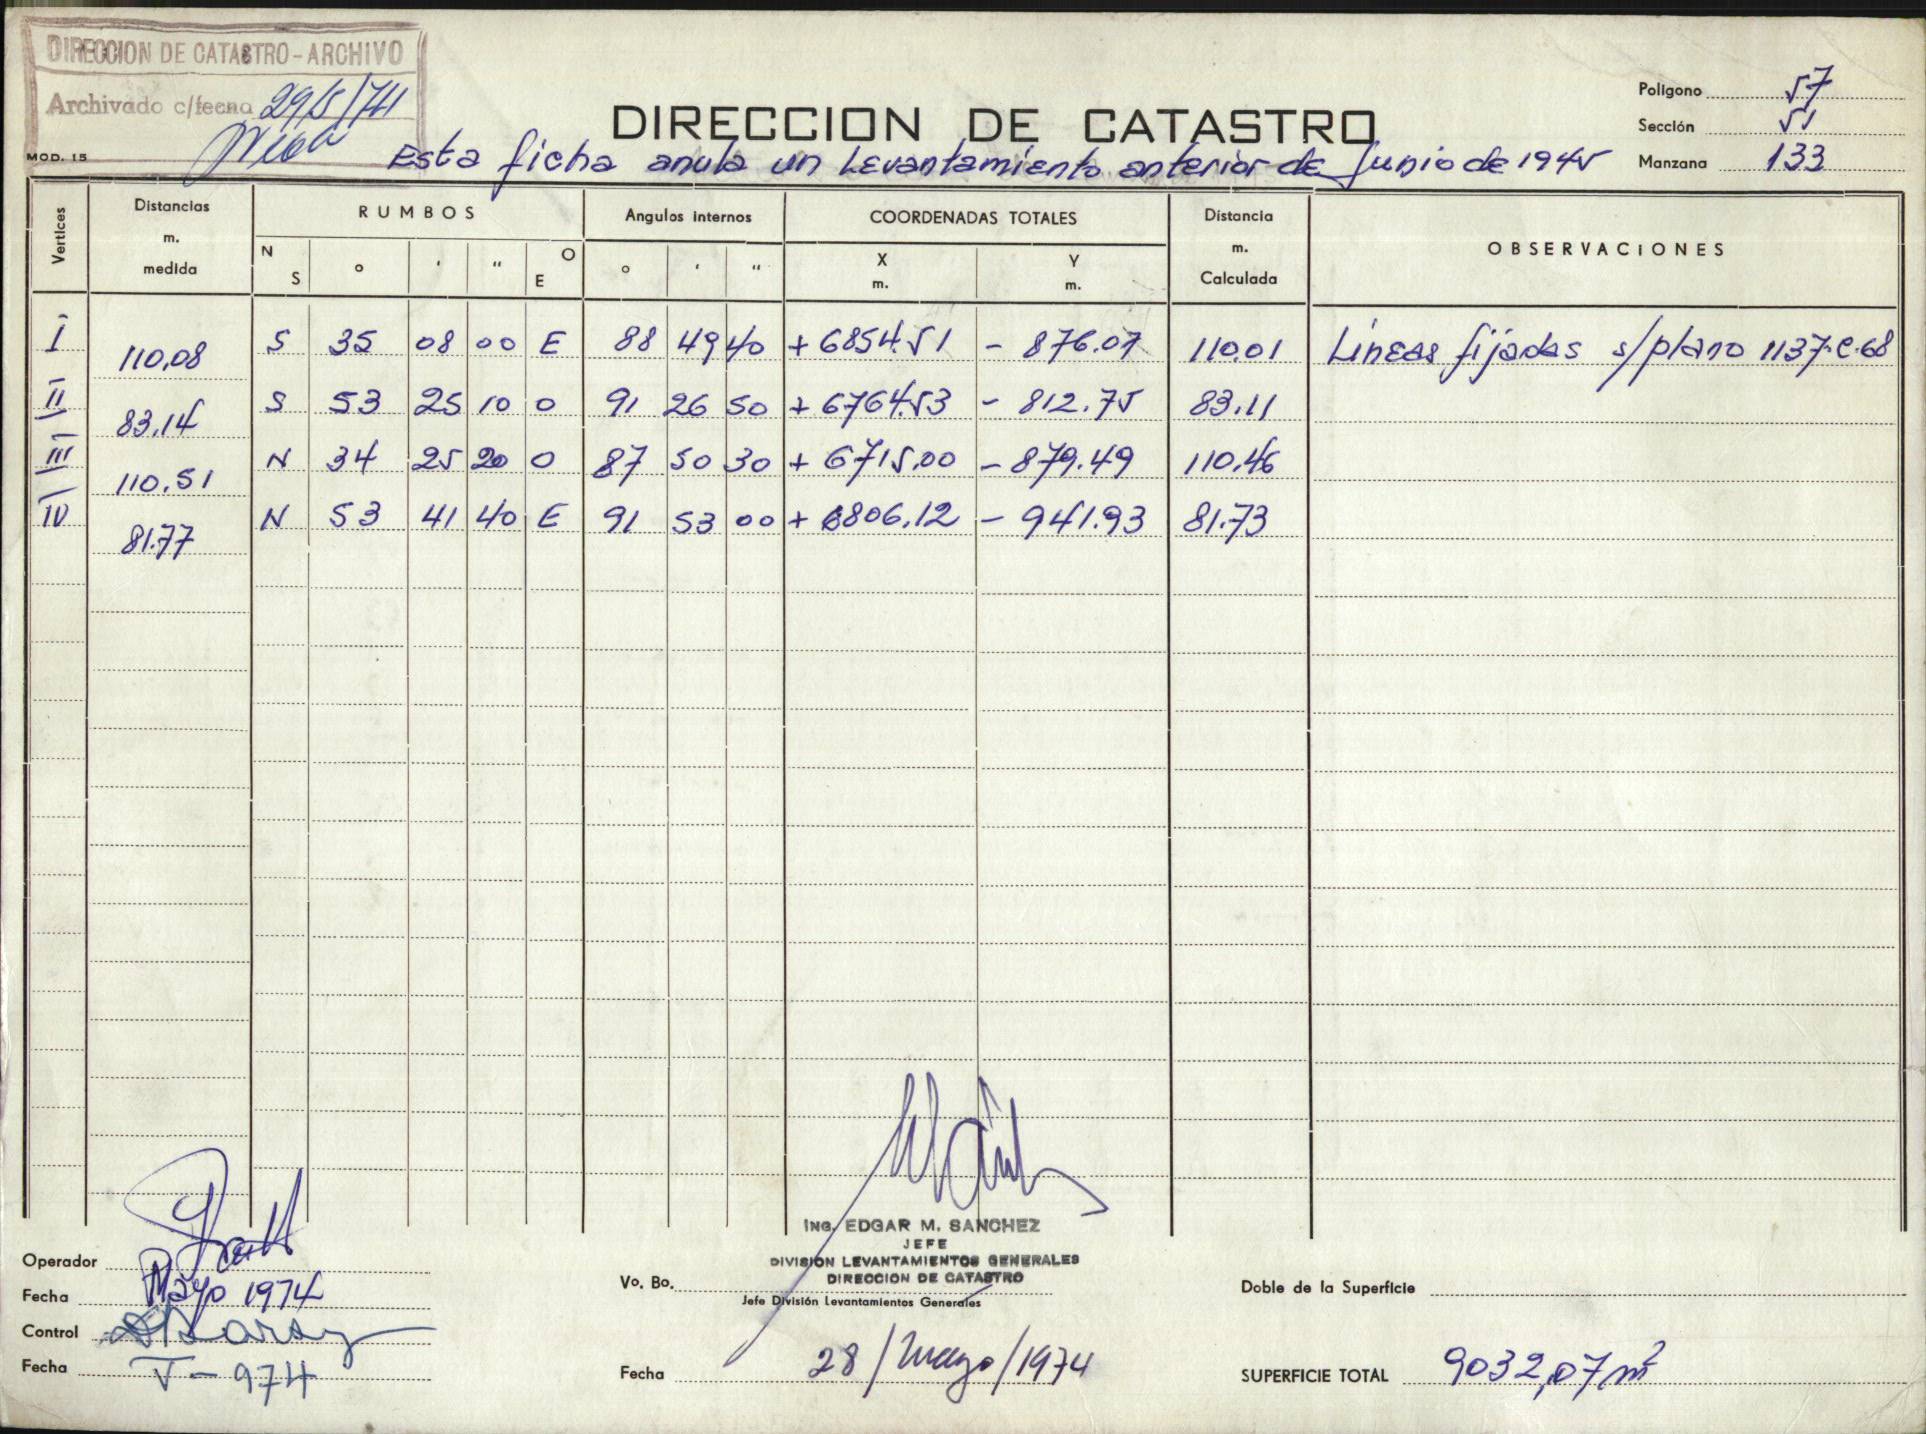 DIRECCION DE CATASTRO - ARCHIVO
Archivado c/fecha 29/5/74
MOD. 15
DIRECCION DE CATASTRO
Esta ficha anula un Levantamiento anterior de Junio de 1945
Poligono 57
Sección 51
Manzana 133
Vertices Distancias m. medida RUMBOS Angulos internos COORDENADAS TOTALES Distancia m. Calculada OBSERVACIONES
N S ° ' " O E ° ' " X m. Y m.
I 110,08 S 35 08 00 E 88 49 40 + 6854.51 - 876.07 110.01 Líneas fijadas s/plano 1137-C-68
II 83.14 S 53 25 10 O 91 26 50 + 6764.53 - 812.75 83.11
III 110.51 N 34 25 20 O 87 50 30 + 6715.00 - 879.49 110.46
IV 81.77 N 53 41 40 E 91 53 00 + 6806.12 - 941.93 81.73
ING. EDGAR M. SANCHEZ
JEFE
DIVISION LEVANTAMIENTOS GENERALES
DIRECCION DE CATASTRO
Operador
Fecha Mayo 1974
Control
Fecha V-974
Vo. Bo.
Jefe División Levantamientos Generales
Fecha 28/Mayo/1974
Doble de la Superficie
SUPERFICIE TOTAL 9032,07 m²